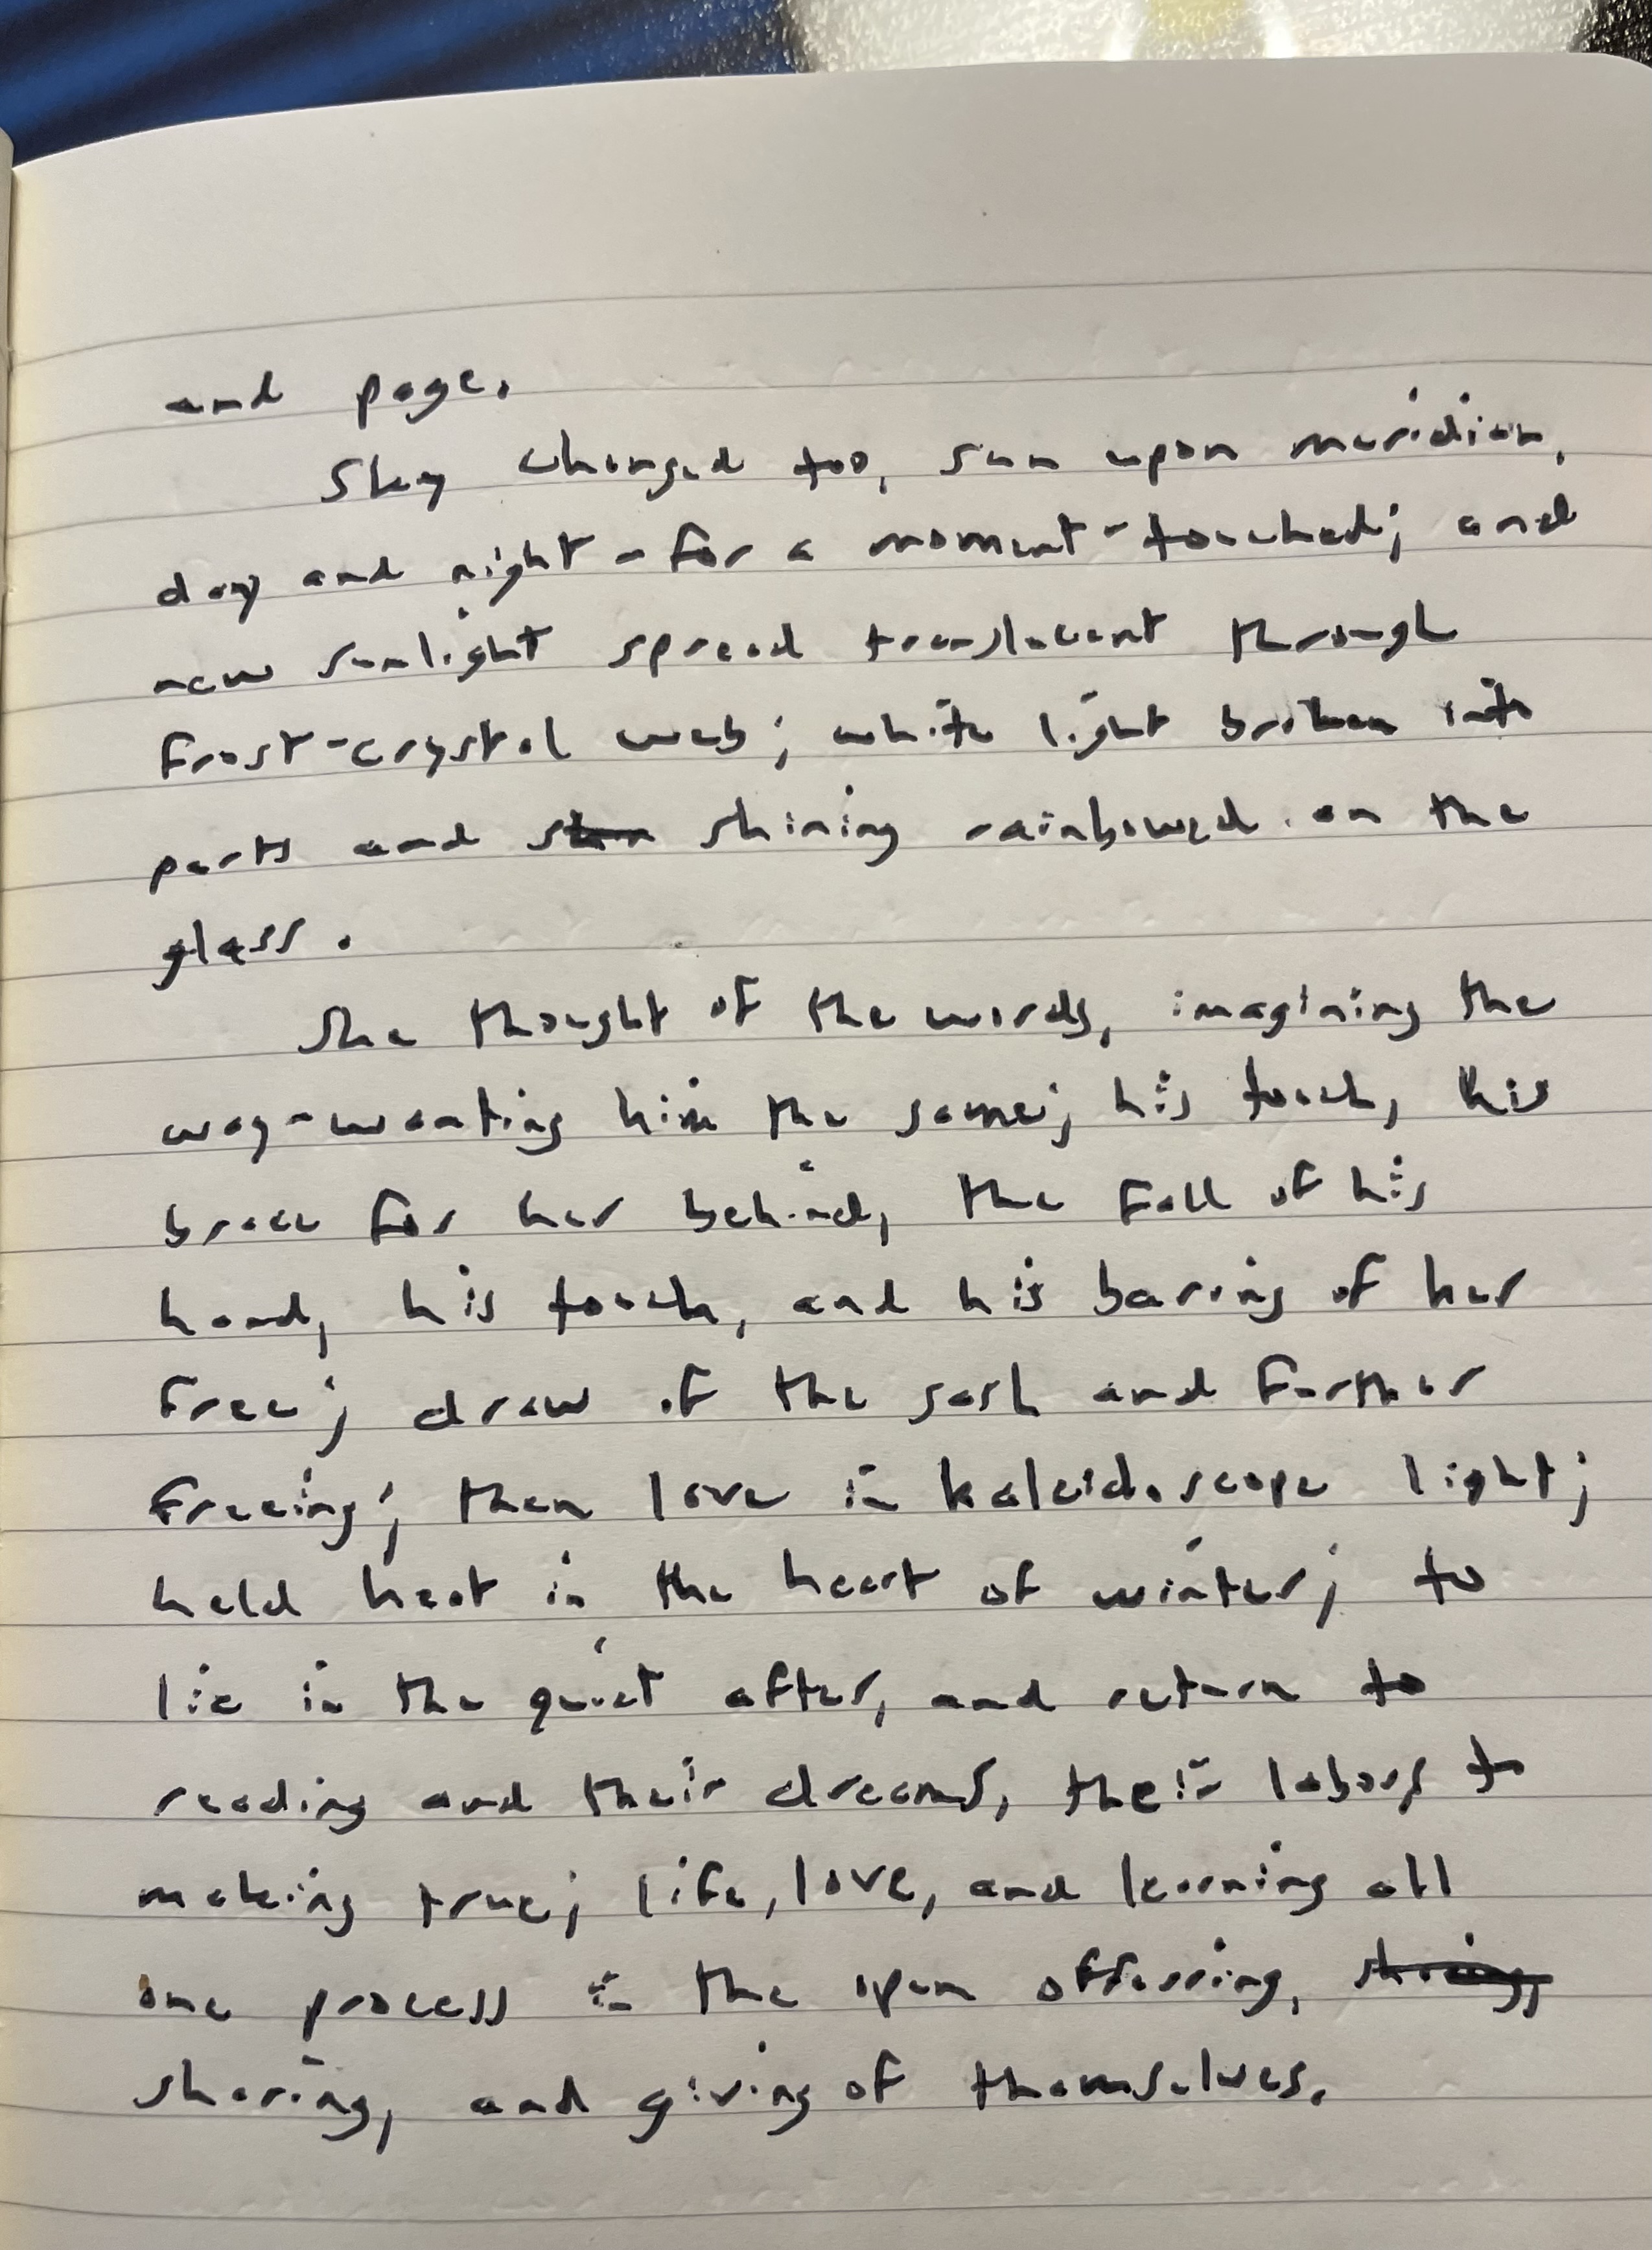 and page.
Sky changed too, sun upon meridian,
day and night - for a moment - touched; and
new sunlight spread translucent through
frost-crystal web; white light broken into
parts and shining rainbowed on the
glass.
She thought of the words, imagining the
way - wanting him the same; his touch, his
brace for her behind, the fall of his
hand, his touch, and his baring of her
free; draw of the sash and further
freeing; then love in kaleidoscope light;
held heat in the heart of winter; to
lie in the quiet after, and return to
reading and their dreams, their labors to
making true; life, love, and learning all
one process in the open offering,
sharing, and giving of themselves.